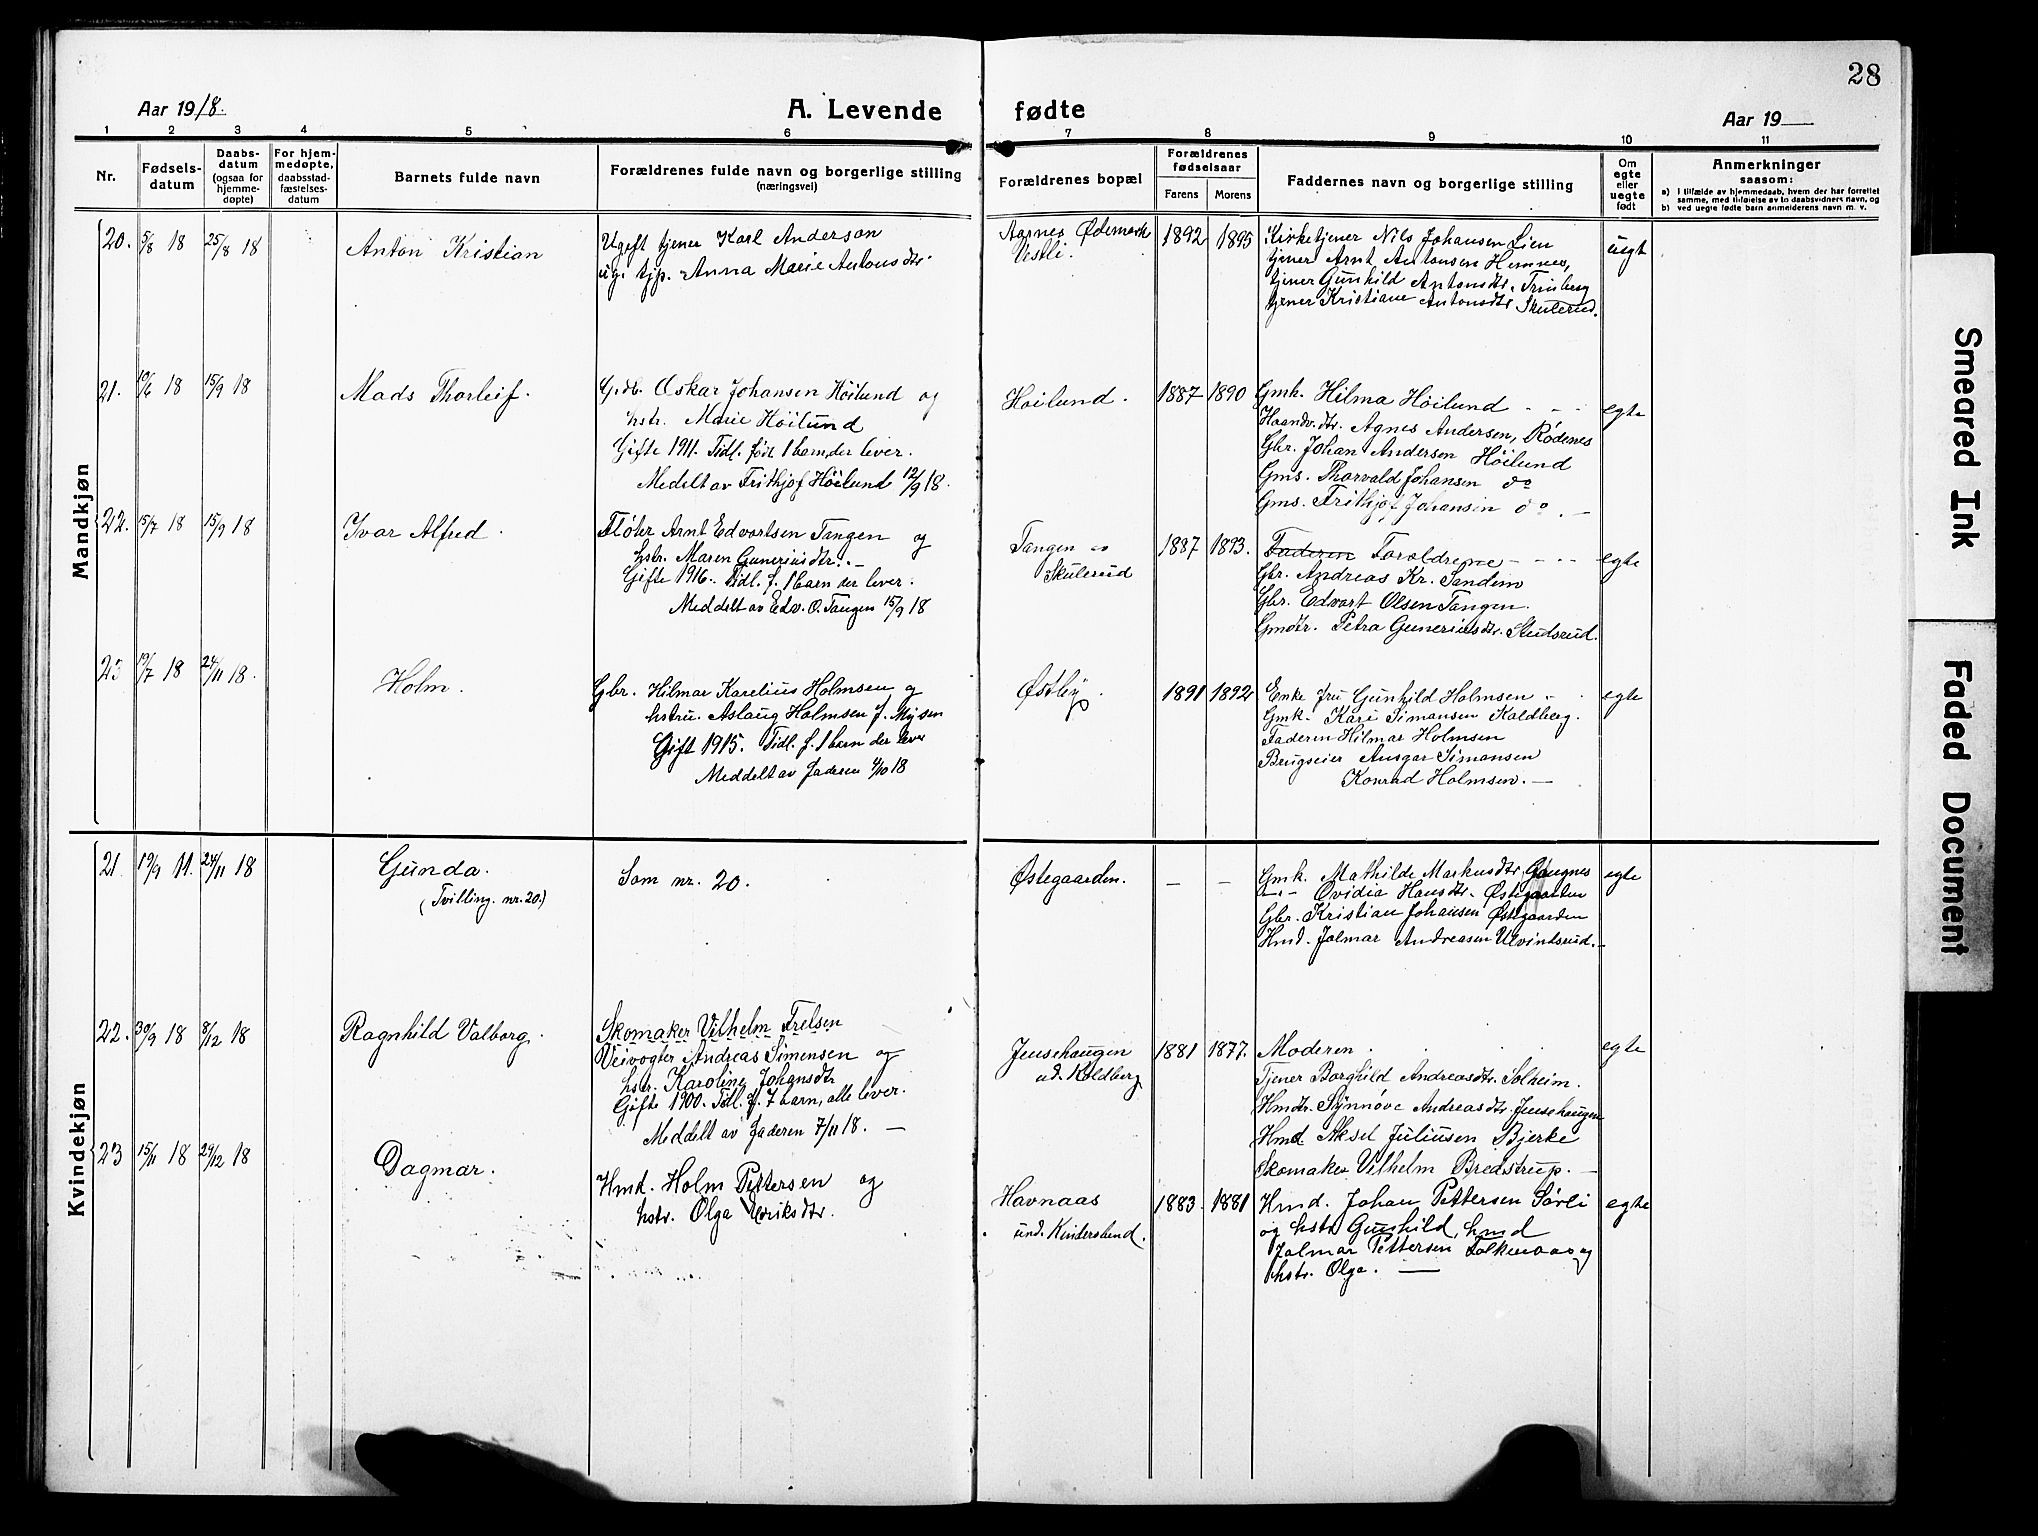 28
Aar 1918.
A. Levende fødte
Aar 19
1 2 3 4 5 6 7 8 9 10 11
Nr.
Fødsels-
datum
Daabs-
datum
(ogsaa for
hjemme-
døpte)
For hjem-
medøpte,
daabsstad-
fæstelses-
datum
Barnets fulde navn
Forældrenes fulde navn og borgerlige stilling
(næringsvei)
Forældrenes bopæl
Forældrenes
fødselsaar
Farens Morens
Faddernes navn og borgerlige stilling
Om
egte
eller
uegte
født
Anmerkninger
saasom:
a) I tilfælde av hjemmedaab, hvem der har forrettet
samme, med tilføielse av to daabsvidners navn, og
b) ved uegte fødte barn anmelderens navn m. v.
Mandkjøn
20. 5/8 18 25/8 18 Anton Kristian
Ugift tjener Karl Anderson
ug. tjp. Anna Marie Antonsdtr.
Aarnes Ødemark
Vestli.
1892 1895
Kirketjener Nils Johansen Lien
tjener Arnt Antonsen Hemnes,
tjener Gunhild Antonsdtr. Trinberg
tjener Kristiane Antonsdtr. Skulerud.
uegt
21. 10/6 18 15/9 18 Mads Thorleif.
Grdb. Oskar Johansen Höilund og
hstr. Marie Höilund
Gifte 1911. Tidl. født 1 barn, der lever.
Medelt av Frithjof Höilund 12/9 18.
Hoilund. 1887 1890
Gmk. Hilma Höilund
Haandv.dtr. Agnes Andersen, Rödenes
Gbr. Johan Andersen Höilund
Gms. Thorvald Johansen do
Gms. Frithjof Johansen do. —
egte
22. 15/7 18 15/9 18 Ivar Alfred.
Fløter Arnt Edvartsen Tangen og
hstr. Maren Guneriusdtr. —
Gifte 1916. Tidl. f. 1 barn der lever.
Meddelt av Edv. O. Tangen 15/9 18
Tangen
Skulerud
1887 1893.
Faderen Foreldrene
Gbr. Andreas Kr. Sandem
Gbr. Edvart Olsen Tangen.
Gmdtr. Petra Guneriusdtr. Studsrud.
egte
23 19/7 18 24/11 18. Holm.
Gbr. Hilmar Karelius Holmsen og
hstru. Aslaug Holmsen f. Mysen
Gift 1915. Tidl. f. 1 barn der lever
Meddelt av faderen 4/10 18
Østby. 1891 1892
Enke fru Gunhild Holmsen
Gmk. Kari Simonsen Koldberg.
Faderen Hilmar Holmsen
Brugseier Ansgar Simonsen
Konrad Holmsen. —
egte
Kvindekjøn
21. 19/9 11. 24/11 18 Gunda.
(Tvilling. nr. 20.)
Som nr. 20.
Østegaarden. — —
Gmk. Mathilde Markusdtr.
—"— Ovidia Hansdtr. Østegaarden
Gbr. Kristian Johansen Østegaarden
Hmd. Jalmar Andreasen Ulvintsrud. —
egte
22. 30/9 18 8/12 18 Ragnhild Valborg.
Skomaker Vilhelm Frelsen
Veivogter Andreas Simensen og
hstr. Karoline Johansdtr
Gifte 1900. Tidl. f. 7 barn, alle lever.
Meddelt av faderen 7/11 18. —
Jensehaugen
ud. Koldberg
1881 1877.
Moderen.
Tjener Borghild Andreasdtr. Solheim.
Hmdtr. Synnöve Andreasdtr. Jensehaugen
Hmd Aksel Juliusen Bjerke
Skomaker Vilhelm Bredstrup. —
egte
23 15/11 18 29/12 18 Dagmar.
Hmd. Holm Pettersen og
hstr. Olga Eriksdtr.
Havnaas
und. Kinderslund.
1883. 1881
Hmd. Johan Pettersen Sørli
og hstr Gunhild, hmd
Jalmar Pettersen Falkenaas og
hstr. Olga. —
egte
Smeared Ink
Faded Document